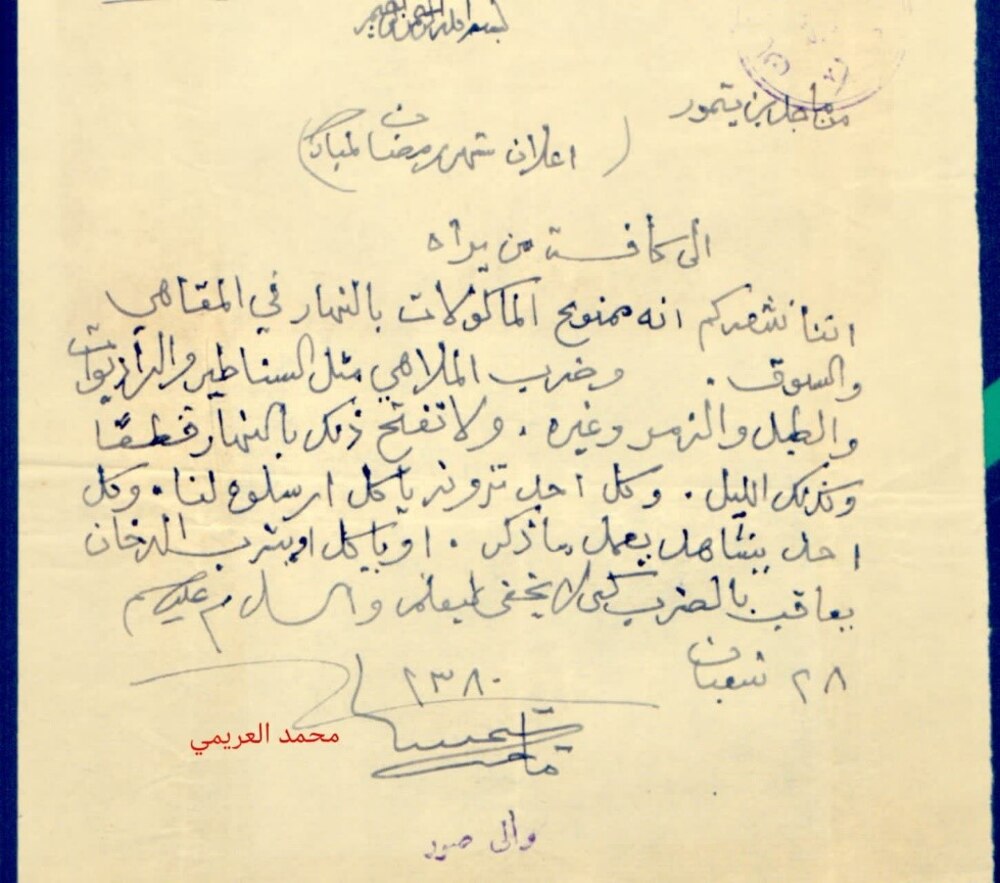 بسم الله الرحمن الرحيم
من ماجد بن تيمور
(اعلان شهر رمضان المبارك)
الى كافة من يراه
اننا نشعركم انه ممنوع الماكولات بالنهار في المقاهي
والسوق . وضرب الملاهي مثل السناطير والراديوات
والطبل والزمر وغيره . ولا تفتح ذلك بالنهار قطعًا
وكذلك الليل . وكل احد ترونه ياكل ارسلوه لنا . وكل
احد يتساهل يعمل ما ذكر . او ياكل او يشرب الدخان
يعاقب بالضرب لكي لا يخفى ليعلم والسلام عليكم
٢٨ شعبان ١٣٨٠
محمد العريمي
والى صور